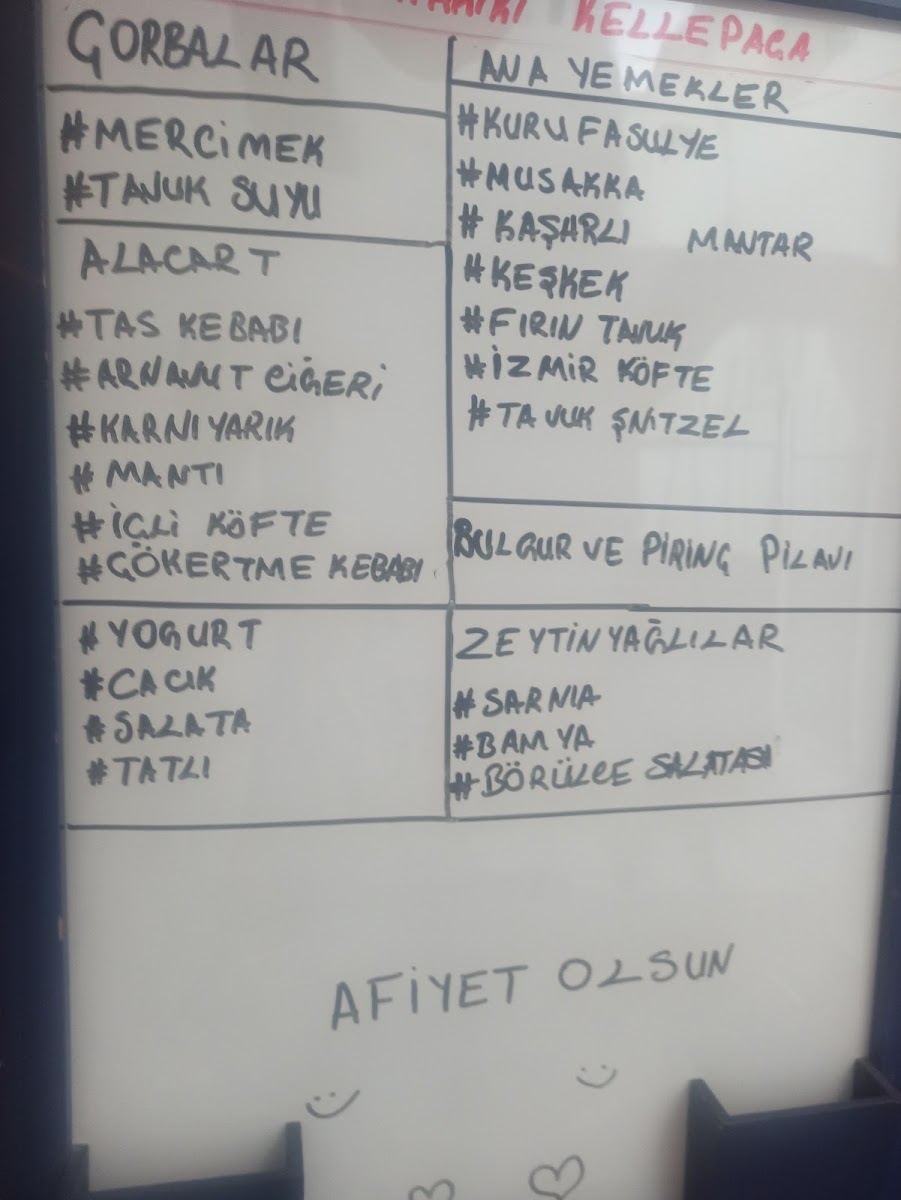 KELLEPAÇA
ÇORBALAR
#MERCİMEK
#TAVUK SUYU
ALACART
#TAS KEBABI
#ARNAVUT CİĞERİ
#KARNIYARIK
#MANTI
#İÇLİ KÖFTE
#ÇÖKERTME KEBABI
#YOGURT
#CACIK
#SALATA
#TATLI
ANA YEMEKLER
#KURU FASULYE
#MUSAKKA
#KAŞARLI MANTAR
#KEŞKEK
#FIRIN TAVUK
#İZMİR KÖFTE
#TAVUK ŞNİTZEL
BULGUR VE PİRİNÇ PİLAVI
ZEYTİNYAĞLILAR
#SARMA
#BAMYA
#BÖRÜLCE SALATASI
AFİYET OLSUN